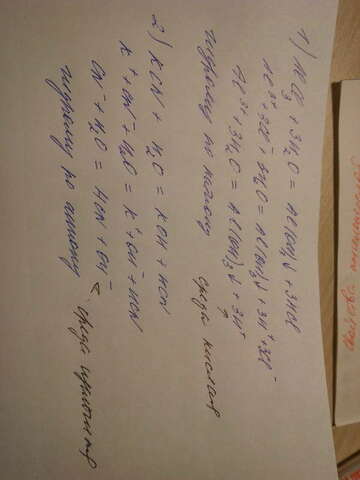 1) AlCl3 + 3H2O = Al(OH)3↓ + 3HCl
Al3+ + 3Cl- + 3H2O = Al(OH)3↓ + 3H+ + 3Cl-
Al3+ + 3H2O = Al(OH)3↓ + 3H+
гидролиз по катиону среда кислая
2) KCN + H2O = KOH + HCN
K+ + CN- + H2O = K+ + OH- + HCN
CN- + H2O = HCN + OH- среда щелочная
гидролиз по аниону